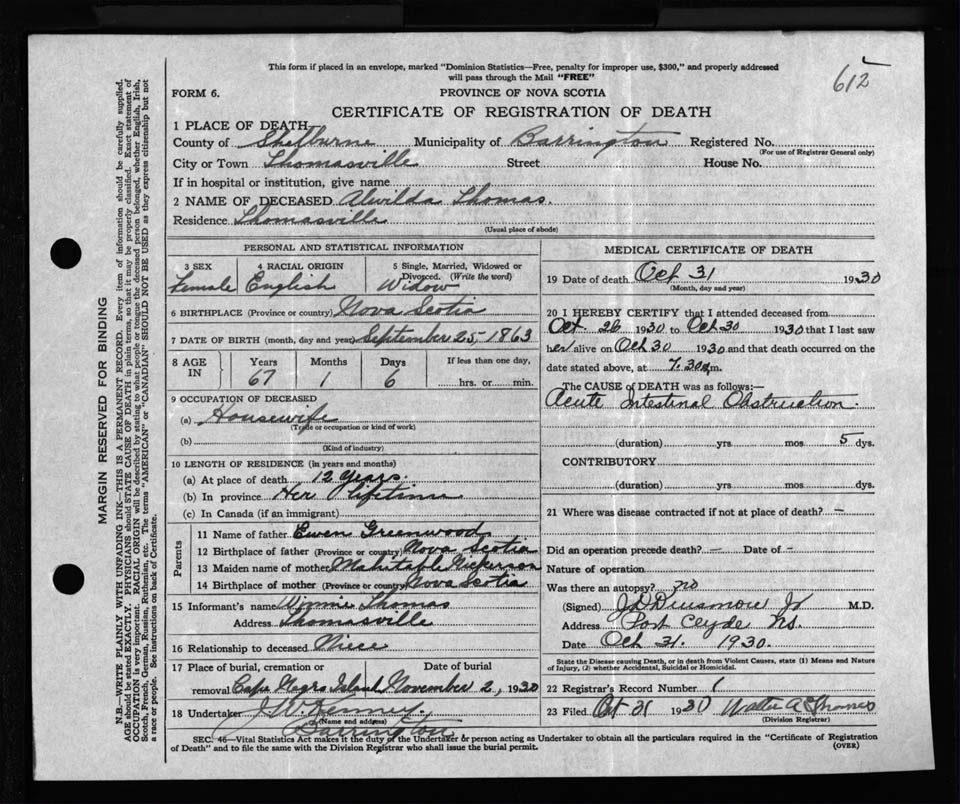 This form if placed in an envelope, marked "Dominion Statistics—Free, penalty for improper use, $300," and properly addressed
will pass through the Mail "FREE"
612
FORM 6.
PROVINCE OF NOVA SCOTIA
CERTIFICATE OF REGISTRATION OF DEATH
1 PLACE OF DEATH
County of Shelburne Municipality of Barrington Registered No.
(For use of Registrar General only)
City or Town Thomasville Street House No.
If in hospital or institution, give name
2 NAME OF DECEASED Alvilda Thomas.
Residence Thomasville
(Usual place of abode)
PERSONAL AND STATISTICAL INFORMATION
3 SEX 4 RACIAL ORIGIN 5 Single, Married, Widowed or Divorced. (Write the word)
Female English Widow
6 BIRTHPLACE (Province or country) Nova Scotia
7 DATE OF BIRTH (month, day and year) September 25, 1863
8 AGE IN Years Months Days If less than one day,
67 1 6 hrs. or min.
9 OCCUPATION OF DECEASED
(a) Housewife
(Trade or occupation or kind of work)
(b)
(Kind of industry)
10 LENGTH OF RESIDENCE (in years and months)
(a) At place of death 12 Years
(b) In province Her Lifetime
(c) In Canada (if an immigrant)
Parents
11 Name of father Ewen Greenwood
12 Birthplace of father (Province or country) Nova Scotia
13 Maiden name of mother Mahitable Nickerson
14 Birthplace of mother (Province or country) Nova Scotia
15 Informant's name Winnie Thomas
Address Thomasville
16 Relationship to deceased Niece
17 Place of burial, cremation or Date of burial
removal Cape Negro Island November 2, 1930
18 Undertaker J. W. Kenney.
(Name and address)
Barrington
MEDICAL CERTIFICATE OF DEATH
19 Date of death Oct 31 1930
(Month, day and year)
20 I HEREBY CERTIFY that I attended deceased from
Oct. 26 1930 to Oct 30 1930 that I last saw
her alive on Oct 30 1930 and that death occurred on the
date stated above, at 7.30 a.m.
The CAUSE OF DEATH was as follows:—
Acute Intestinal Obstruction.
(duration) yrs mos 5 dys.
CONTRIBUTORY
(duration) yrs mos dys.
21 Where was disease contracted if not at place of death? —
Did an operation precede death? — Date of -
Nature of operation
Was there an autopsy? no
(Signed) J D Densmore Jr M.D.
Address Port Clyde N.S.
Date Oct 31. 1930.
State the Disease causing Death, or in death from Violent Causes, state (1) Means and Nature
of Injury, (2) whether Accidental, Suicidal or Homicidal.
22 Registrar's Record Number 1
23 Filed Oct 31 1930 Walter A Thomas
(Division Registrar)
SEC. 46—Vital Statistics Act makes it the duty of the Undertaker or person acting as Undertaker to obtain all the particulars required in the "Certificate of Registration
of Death" and to file the same with the Division Registrar who shall issue the burial permit.
(OVER)
MARGIN RESERVED FOR BINDING
N.B.—WRITE PLAINLY WITH UNFADING INK—THIS IS A PERMANENT RECORD. Every item of information should be carefully supplied.
AGE should be stated EXACTLY. PHYSICIANS should STATE CAUSE OF DEATH in plain terms, so that it may be properly classified. Exact statement of
OCCUPATION is very important. RACIAL ORIGIN will be described by stating to what people or tongue the deceased person belonged, whether English, Irish,
Scotch, French, German, Russian, Ruthenian, etc. The terms "AMERICAN" or "CANADIAN" SHOULD NOT BE USED as they express citizenship but not
a race or people. See instructions on back of Certificate.